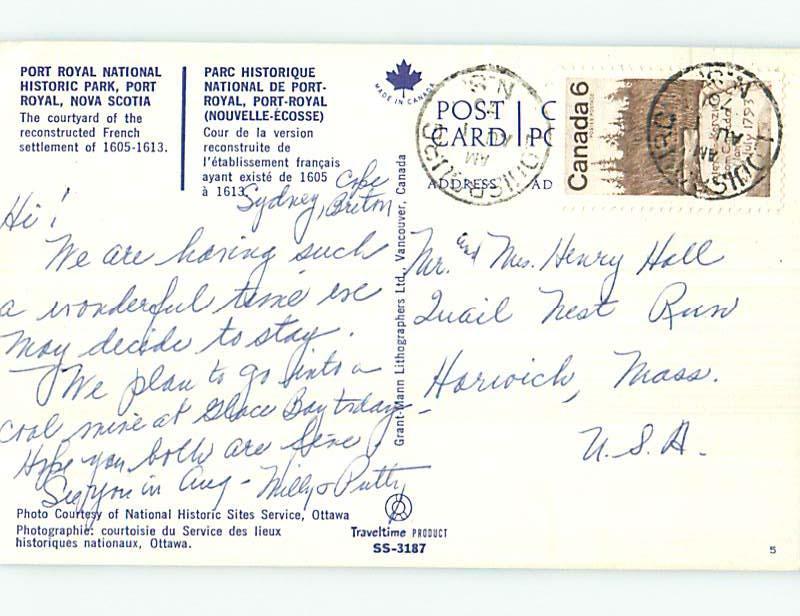 PORT ROYAL NATIONAL
HISTORIC PARK, PORT
ROYAL, NOVA SCOTIA
The courtyard of the
reconstructed French
settlement of 1605-1613.
PARC HISTORIQUE
NATIONAL DE PORT-
ROYAL, PORT-ROYAL
(NOUVELLE-ÉCOSSE)
Cour de la version
reconstruite de
l'établissement français
ayant existé de 1605
à 1613.
MADE IN CANADA
POST
CARD
ADDRESS
C
PC
AD
Canada 6
POSTES POSTAGE
LOUISBOURG
N.S.
AM
LOUISBOURG
N.S.
AM
AU
70
July 1793
Sydney, Cape
Breton
Hi!
We are having such
a wonderful time we
may decide to stay.
We plan to go into a
coal mine at Glace Bay today
Hope you both are fine
See you in Aug - Milly & Putty
Mr. and Mrs. Henry Hall
Quail Nest Run
Harwich, Mass.
U.S.A.
Grant-Mann Lithographers Ltd., Vancouver, Canada
Photo Courtesy of National Historic Sites Service, Ottawa
Photographie: courtoisie du Service des lieux
historiques nationaux, Ottawa.
Traveltime PRODUCT
SS-3187
5